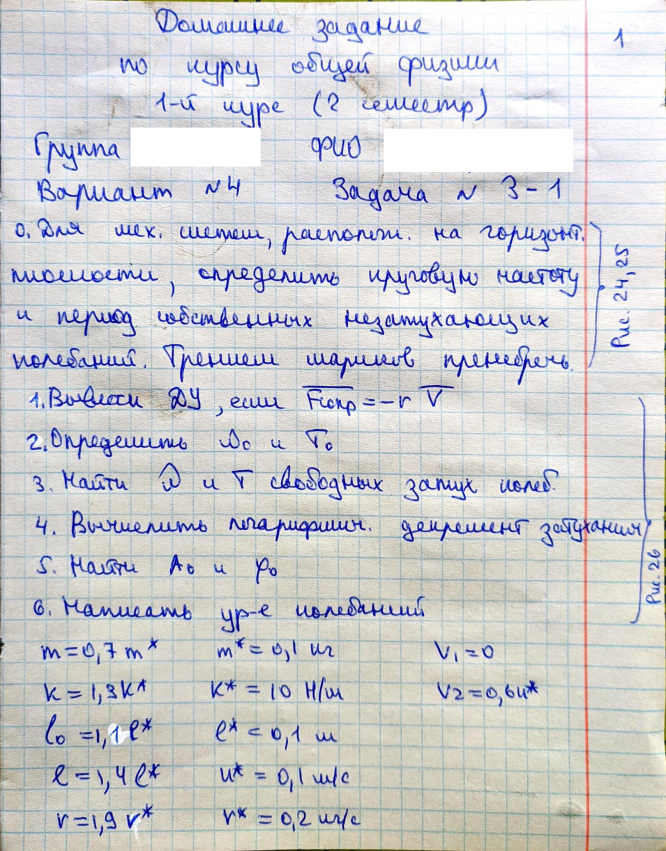 Домашнее задание
1
по курсу общей физики
1-й курс (2 семестр)
Группа ФИО
Вариант №4 Задача № 3-1
0. Для мех. систем, располож. на горизонт.
плоскости, определить круговую частоту
и период собственных незатухающих
колебаний. Трением шариков пренебречь.
Рис. 24, 25
1. Вывести ДУ, если Fсопр = -r V
2. Определить ω₀ и T₀
3. Найти ω и T свободных затух колеб.
4. Вычислить логарифмич. декремент затухания
5. Найти A₀ и φ₀
6. Написать ур-е колебаний
Рис 26
m=0,7 m* m*=0,1 кг V₁=0
k=1,3k* k*=10 Н/м V2=0,6u*
l₀=1,1l* l*=0,1 м
l=1,4l* u*=0,1 м/с
r=1,9 r* r*=0,2 кг/с